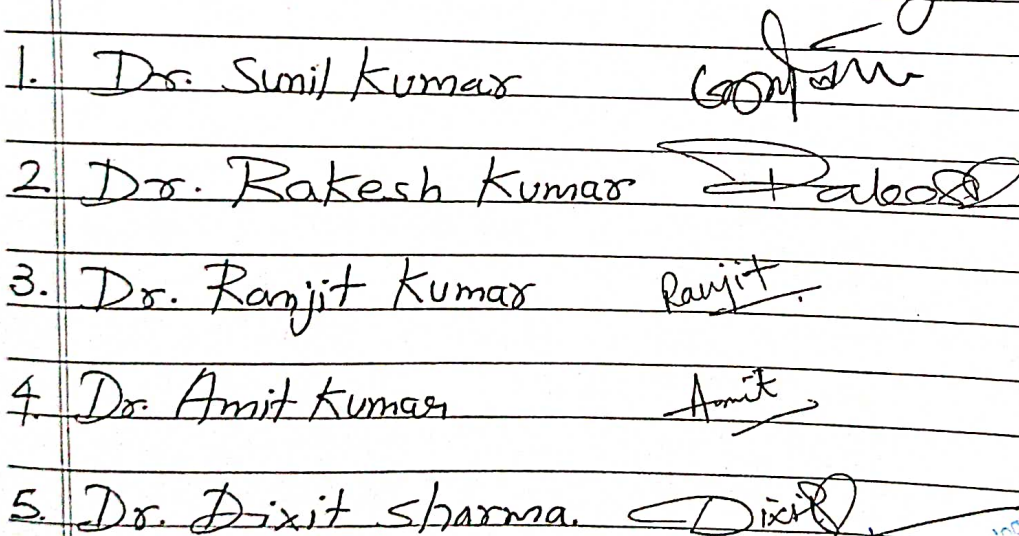 1. Dr. Sunil Kumar
2 Dr. Rakesh Kumar
3. Dr. Ranjit Kumar Ranjit
4. Dr. Amit Kumar Amit
5. Dr. Dixit Sharma. Dixit